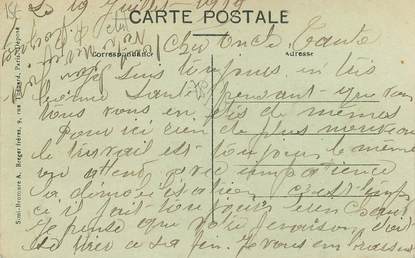 Le 19 Juillet 1919
CARTE POSTALE
Correspondance
Adresse
Cher Oncle, Tante
Je suis toujours en très
bonne santé pendant que
vous en êtes de mêmes
Pour ici rien de plus nouveau
le travail est toujours le même
on attend avec impatience
la démobilisation c'est long
ici il fait toujours bien chaud
Je pense que votre
se tirer a sa fin. Je vous embrasse
Simi-Bromure A. Breger frères, 9, rue Thénard, Paris